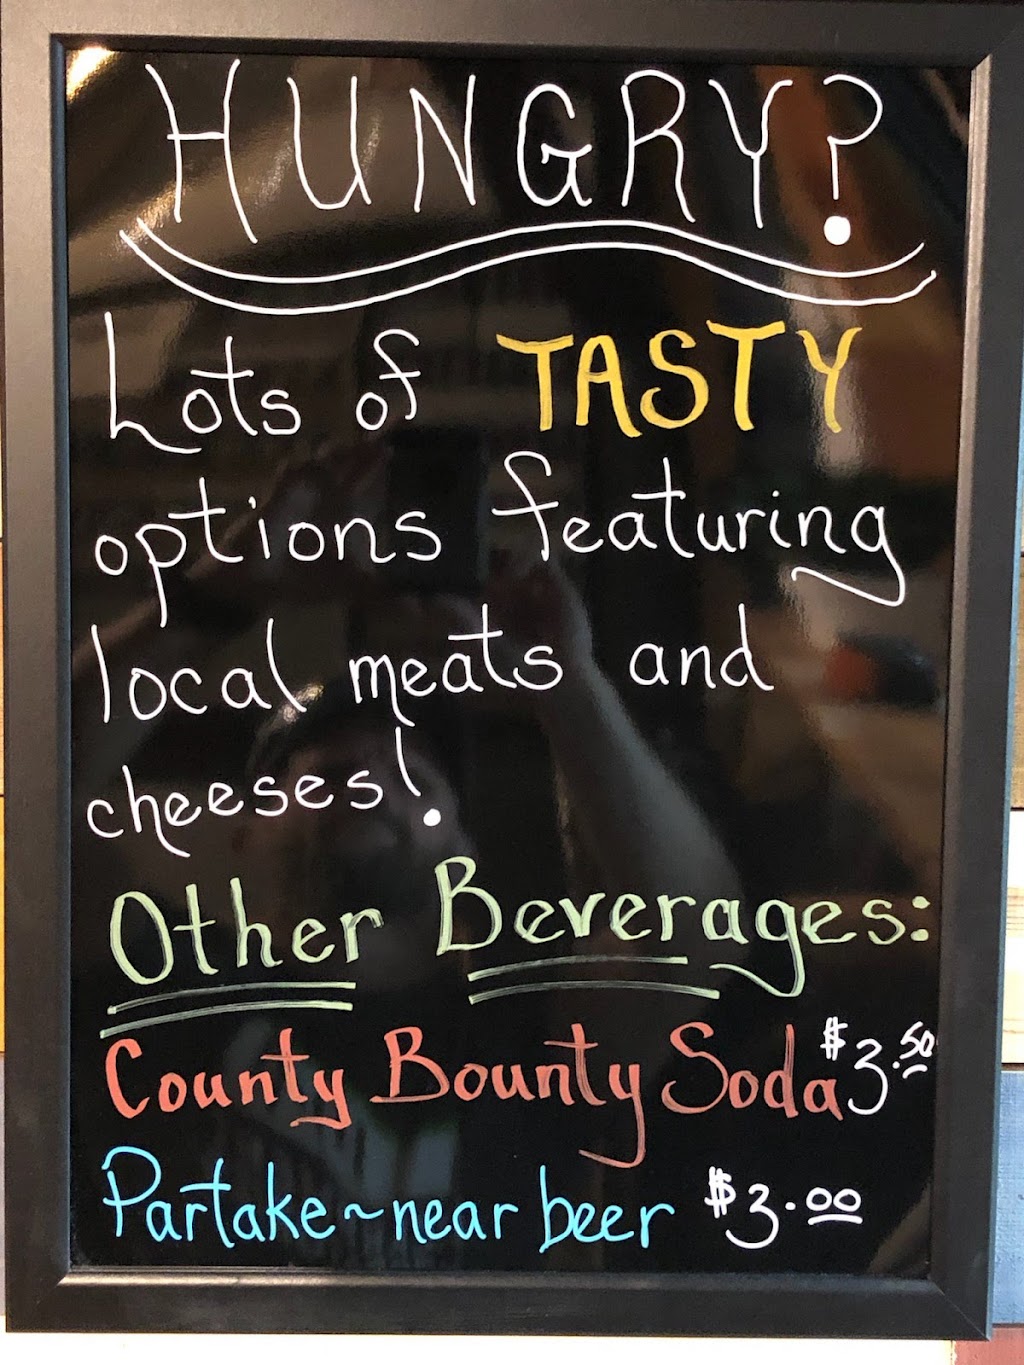 HUNGRY?
Lots of TASTY
options featuring
local meats and
cheeses!
Other Beverages:
County Bounty Soda $3.50
Partake~near beer $3.00